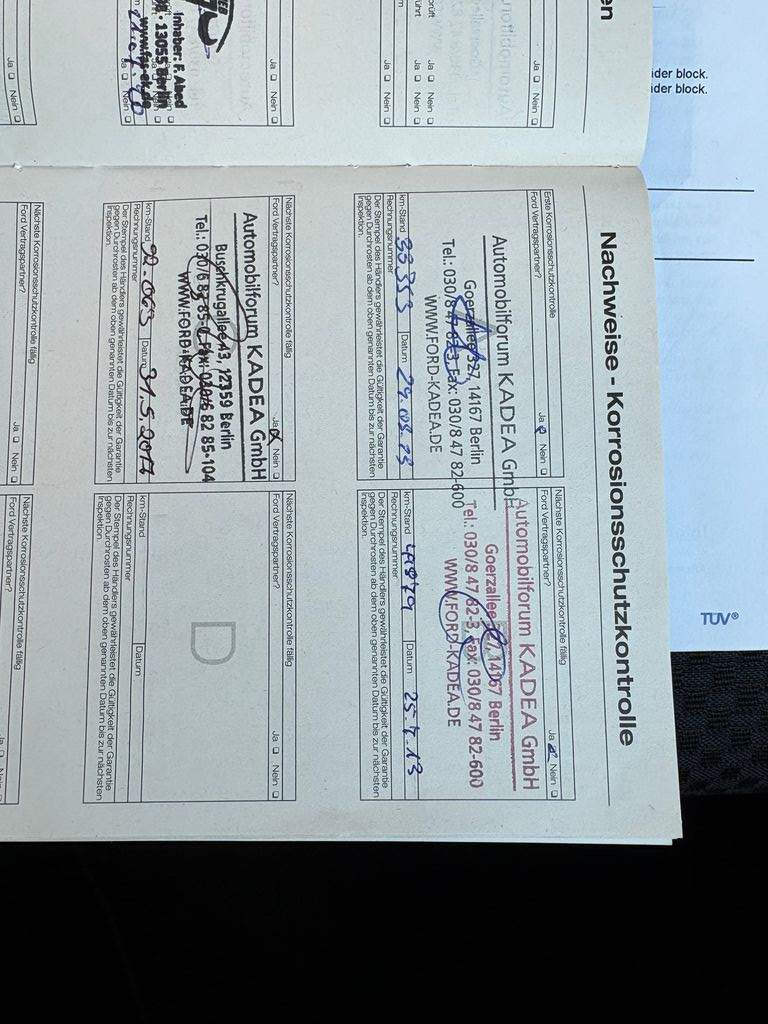 Nachweise - Korrosionsschutzkontrolle
Erste Korrosionsschutzkontrolle
Ford Vertragspartner? Ja Nein
Automobilforum KADEA GmbH
Goerzallee 327, 14167 Berlin
Tel.: 030/8 47 82-3, Fax: 030/8 47 82-600
WWW.FORD-KADEA.DE
km-Stand 33353 Datum
Rechnungsnummer
Der Stempel des Händlers gewährleistet die Gültigkeit der Garantie
gegen Durchrosten ab dem oben genannten Datum bis zur nächsten
Inspektion.
Nächste Korrosionsschutzkontrolle fällig
Ford Vertragspartner? Ja Nein
Automobilforum KADEA GmbH
Goerzallee 14167 Berlin
Tel.: 030/8 47 82-3, Fax: 030/8 47 82-600
WWW.FORD-KADEA.DE
km-Stand Datum 25.7.13
Rechnungsnummer
Der Stempel des Händlers gewährleistet die Gültigkeit der Garantie
gegen Durchrosten ab dem oben genannten Datum bis zur nächsten
Inspektion.
Nächste Korrosionsschutzkontrolle fällig
Ford Vertragspartner? Ja Nein
Automobilforum KADEA GmbH
Buschkrugallee 43, 12359 Berlin
Tel.: 030/6 82 85-0 Fax: 030/6 82 85-104
WWW.FORD-KADEA.DE
km-Stand Datum 31.5.2017
Rechnungsnummer
Der Stempel des Händlers gewährleistet die Gültigkeit der Garantie
gegen Durchrosten ab dem oben genannten Datum bis zur nächsten
Inspektion.
Nächste Korrosionsschutzkontrolle fällig
Ford Vertragspartner? Ja Nein
D
km-Stand Datum
Rechnungsnummer
Der Stempel des Händlers gewährleistet die Gültigkeit der Garantie
gegen Durchrosten ab dem oben genannten Datum bis zur nächsten
Inspektion.
Nächste Korrosionsschutzkontrolle fällig
Ford Vertragspartner? Ja Nein
Nächste Korrosionsschutzkontrolle fällig
Ford Vertragspartner? Ja Nein
en
Ja Nein
Ja Nein
Ja Nein
Ja Nein
Ja Nein
Inhaber: F. Abed
13055 Berlin
Ja Nein
der block.
der block.
TÜV®